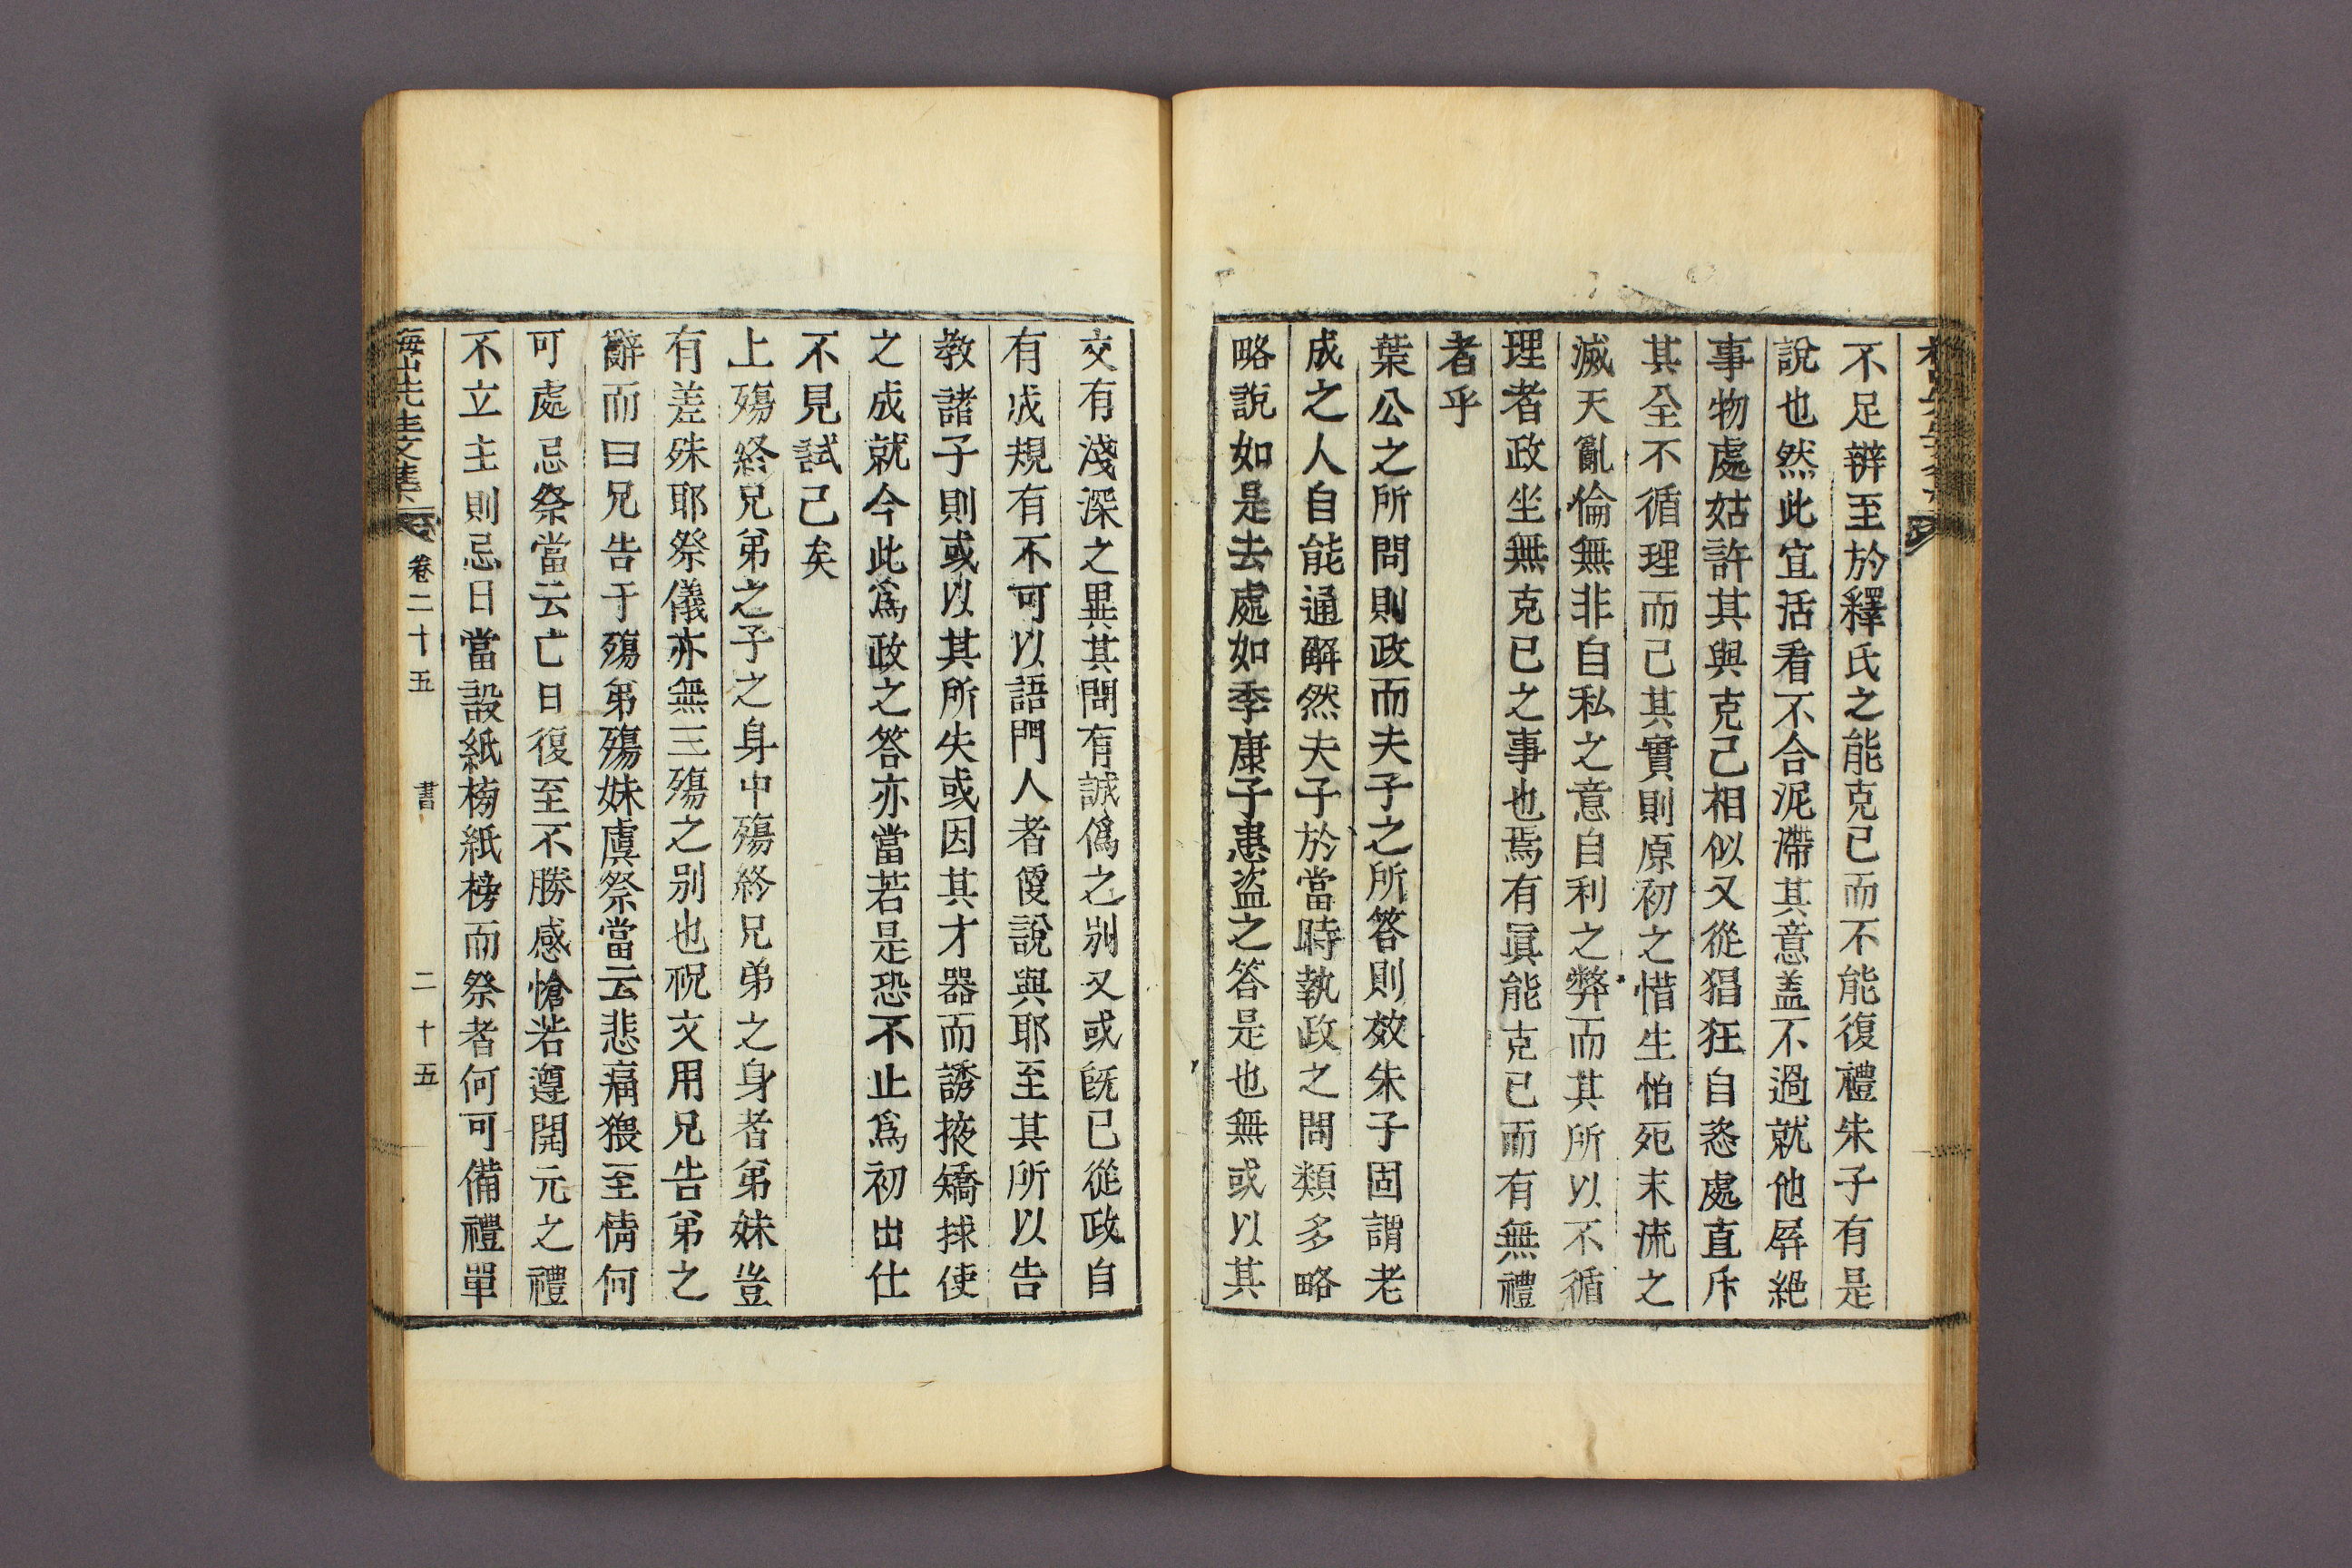 不足辨至於釋氏之能克己而不能復禮朱子有是
說也然此宜活看不合泥滯其意盖不過就他屛絶
事物處姑許其與克己相似又從猖狂自恣處直斥
其全不循理而己其實則原初之惜生怕死末流之
滅天亂倫無非自私之意自利之弊而其所以不循
理者政坐無克己之事也焉有眞能克己而有無禮
者乎
葉公之所問則政而夫子之所答則效朱子固謂老
成之人自能通解然夫子於當時執政之問類多略
略說如是去處如季康子患盜之答是也無或以其
交有淺深之異其問有誠僞之别又或旣已從政自
有成規有不可以語門人者僾說與耶至其所以告
教諸子則或以其所失或因其才器而誘掖矯捄使
之成就今此爲政之答亦當若是恐不止爲初出仕
不見試己矣
上殤終兄弟之子之身中殤終兄弟之身者弟妹豈
有差殊耶祭儀亦無三殤之别也祝文用兄告弟之
辭而曰兄告于殤弟殤妹虞祭當云悲痛猥至情何
可處忌祭當云亡日復至不勝感愴若遵開元之禮
不立主則忌日當設紙榜紙榜而祭者何可備禮單
先生文集
卷二十五
書
二十五